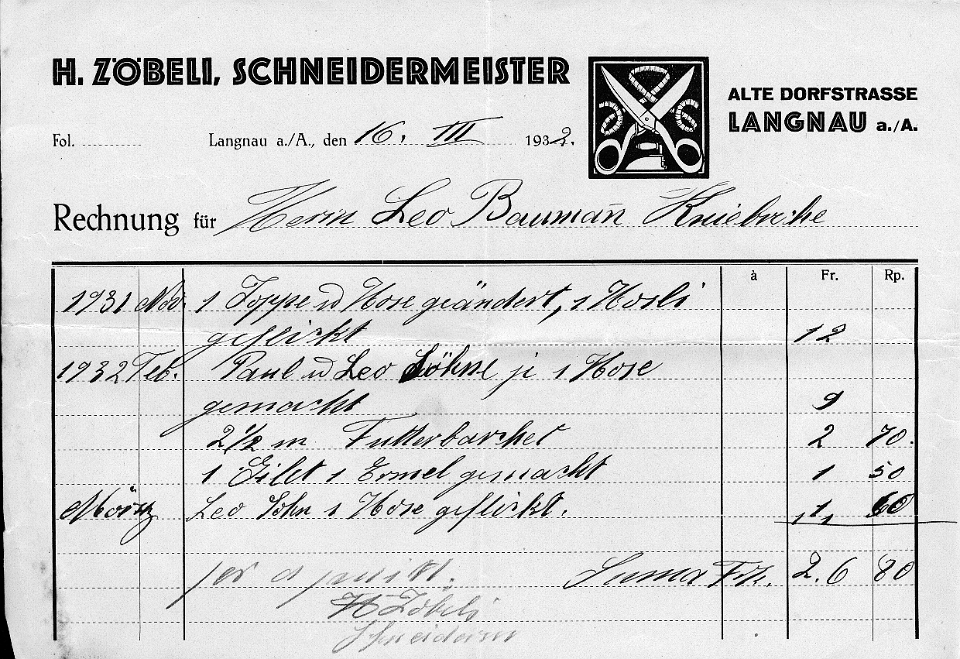 H. ZÖBELI, SCHNEIDERMEISTER
ALTE DORFSTRASSE
LANGNAU a./A.
Fol. Langnau a./A., den 16. III 1932.
Rechnung für Herrn Leo Baumann
à Fr. Rp.
1931 Nov. 1 Joppe u Hose geändert, 1 Hosli
geflickt 12
1932 Feb. Paul u Leo Söhne je 1 Hose
gemacht 9
2 1/2 m Futterbarchet 2 70.
1 Gilet 1 Ermel gemacht 1 50
März Leo Sohn 1 Hose geflickt. 1 60
Suma Fr. 26 80
H Zöbeli